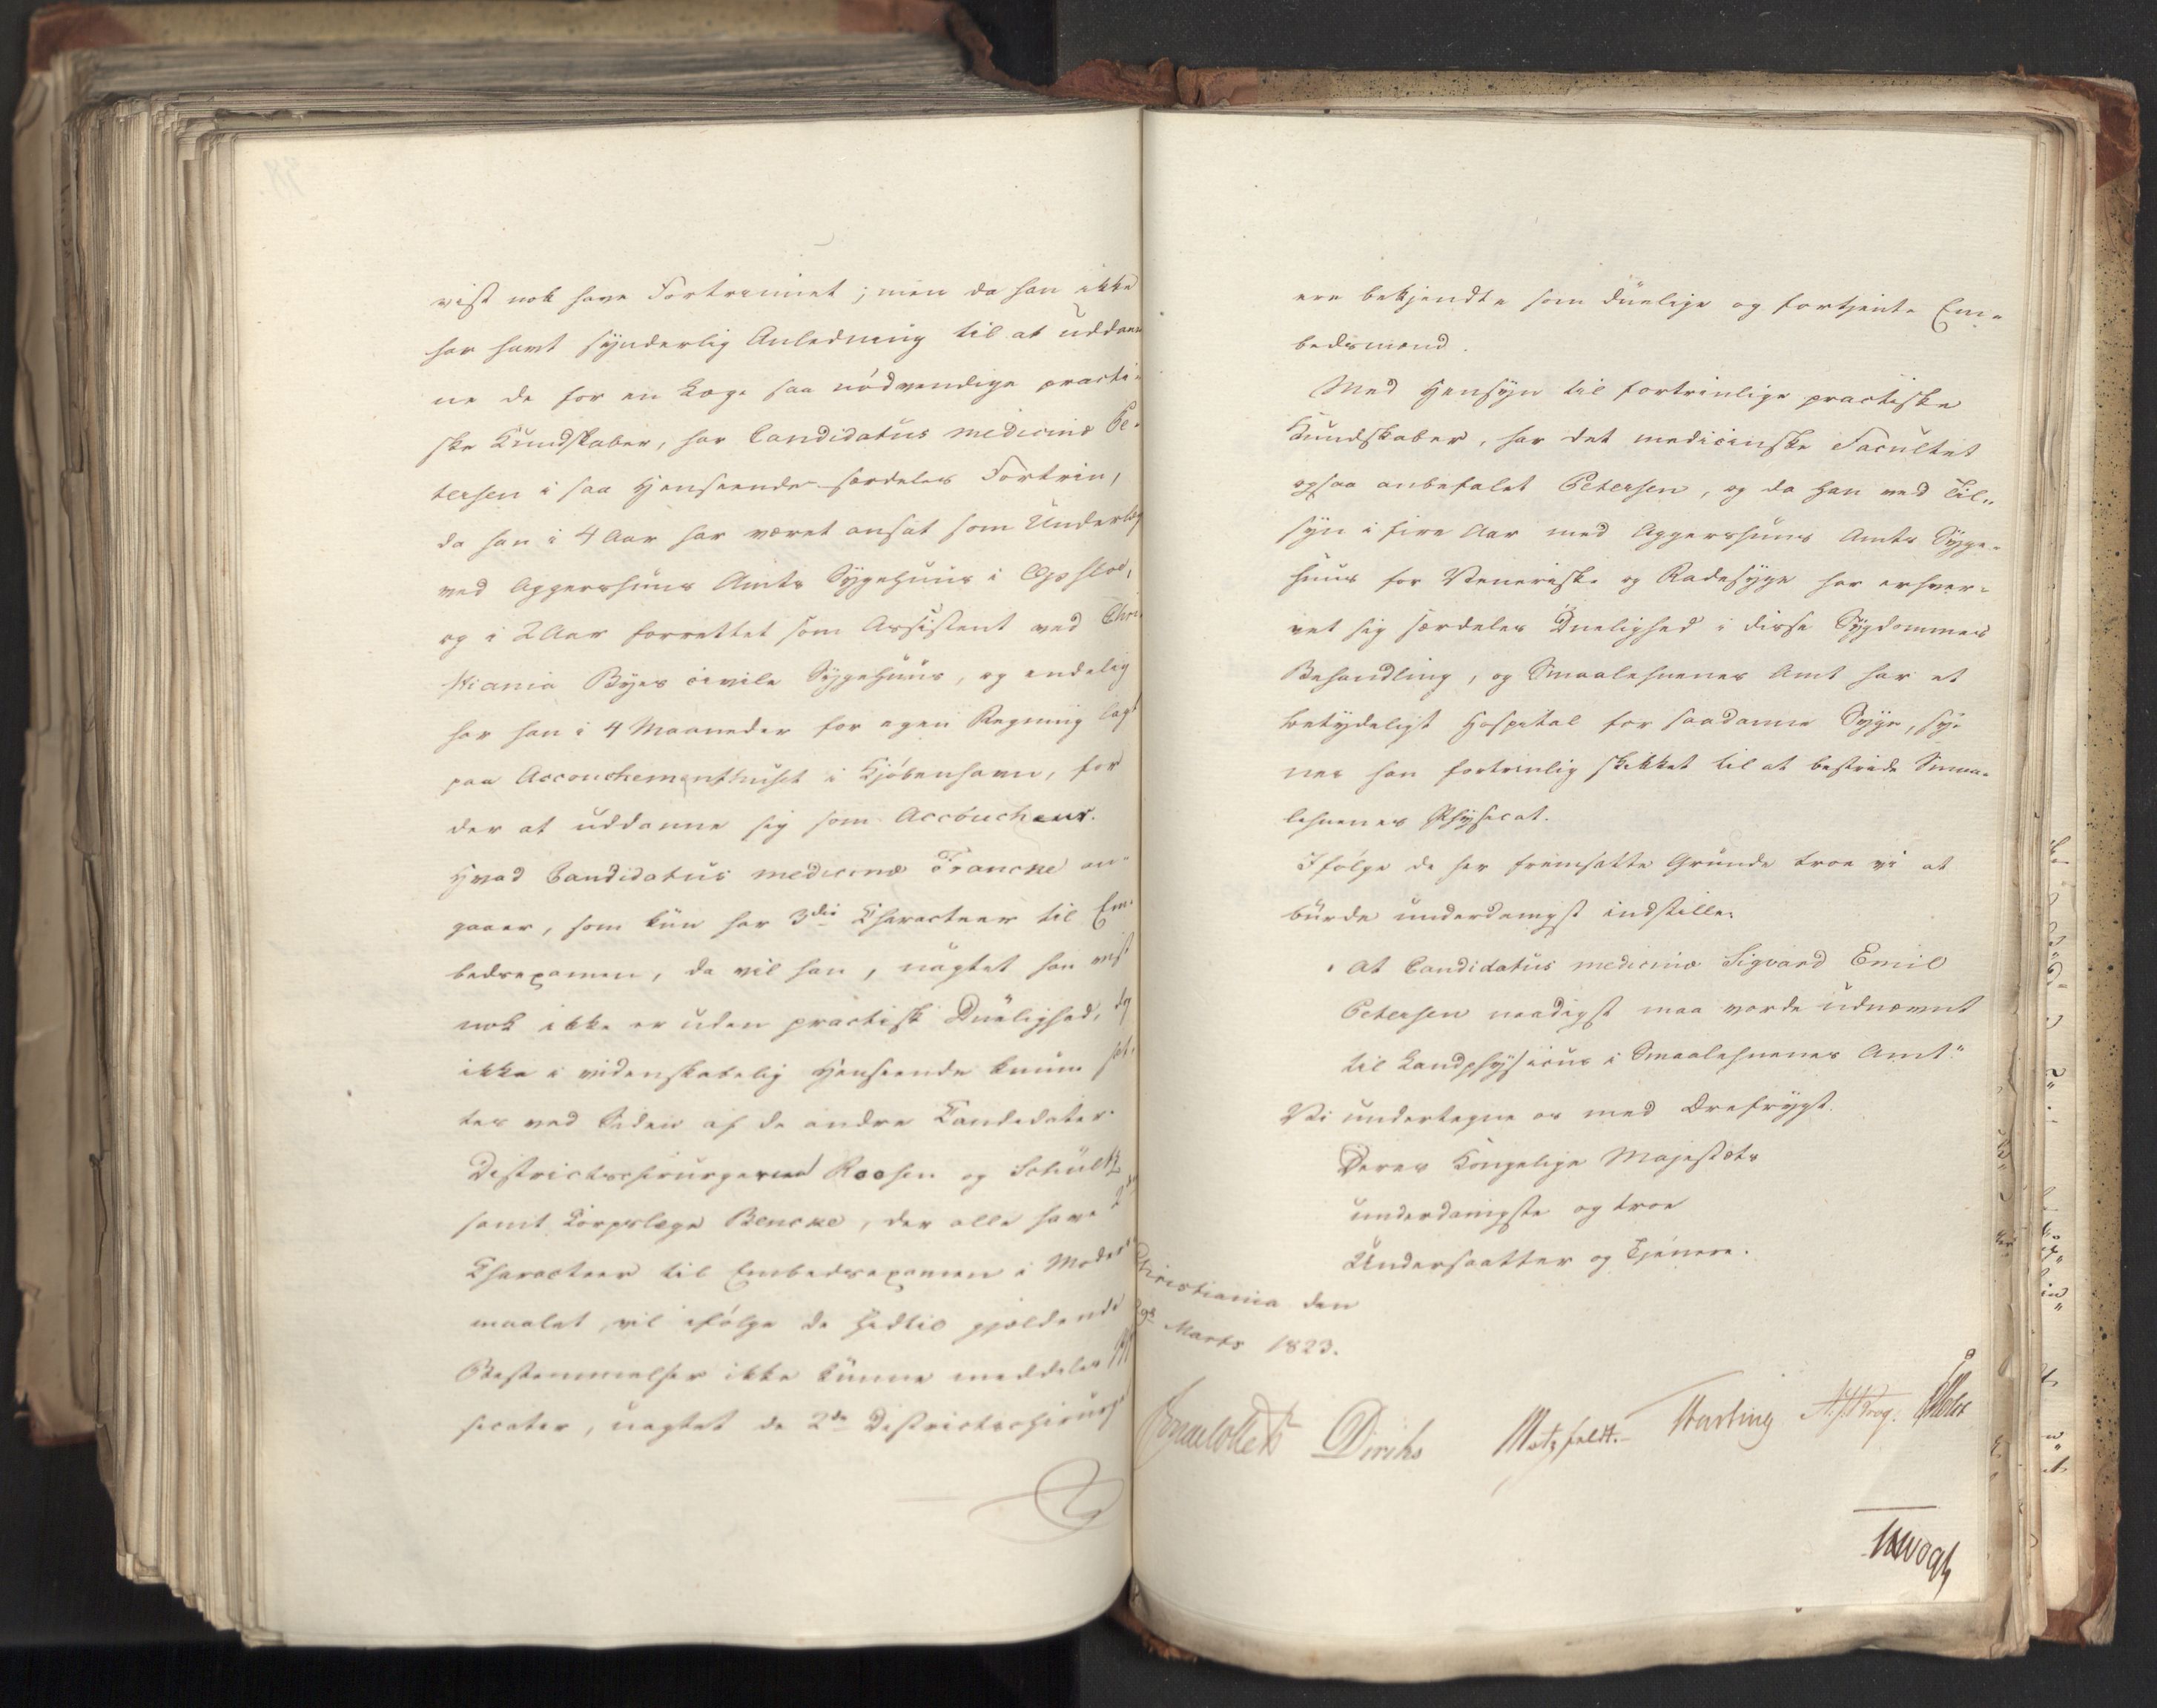 vist nok have Fortrinnet; men da han ikke
har havt synderlig Anledning til at uddan-
ne de for en Læge saa nødvendige practi-
ske Kundskaber, har Candidatus medicinæ Pe-
tersen i saa Henseende særdeles Fortrin,
da han i 4 Aar har været ansat som Underlæge
ved Aggershuus Amts Sygehuus i Opsloe,
og i 2 Aar forrettet som Assistent ved Chri-
stiania Byes civile Sygehuus, og endelig
har han i 4 Maaneder for egen Regning lagt
paa Accouchementhuset i Kjøbenhavn, for
der at uddanne sig som Accoucheur.
Hvad Candidatus medicinæ Francke an-
gaaer, som kun har 3die Characteer til Em-
bedsexamen, da vil han, uagtet han vist
nok ikke er uden practisk Duelighed, dog
ikke i videnskabelig Henseende kunne sæt-
tes ved Siden af de andre Candidater.
Districtschirurgerne Roosen og Schultz
samt Corpslæge Bencke, der alle have 2den
Characteer til Embedsexamen i Moders-
maalet, vil ifølge de hidtil gjældende
Bestemmelser ikke kunne meddeles Phy-
sicater, uagtet de 2de Districtschirurger
ere bekjendte som duelige og fortjente Em-
bedsmænd.
Med Hensyn til fortrinlige practiske
Kundskaber, har det medicinske Facultet
ogsaa anbefalet Petersen, og da han ved Til-
syn i fire Aar med Aggershuus Amts Syge-
huus for Veneriske og Radesyge har erhver-
vet sig særdeles Duelighed i disse Sygdommes
Behandling, og Smaalehnenes Amt har et
betydeligt Hospital for saadanne Syge, sy-
nes han fortrinlig skikket til at bestride Smaa-
lehnenes Physicat.
Ifølge de her fremsatte Grunde troe vi at
burde underdanigst indstille:
"At Candidatus medicinæ Sigvard Emil
Petersen naadigst maa vorde udnævnt
til Landphysicus i Smaalehnenes Amt."
Vi undertegne os med Ærefrygt.
Deres Kongelige Majestæts
underdanigste og troe
Undersaatter og Tjenere.
Christiania den
29 Marts 1823.
Sommerhielm Diriks Motzfeldt. Fasting A. J. Krog. Holst
JHVogt